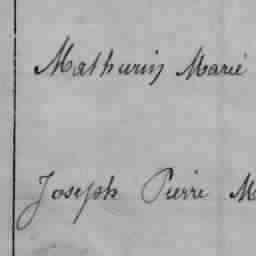 Mathurin Marie
Joseph Pierre M